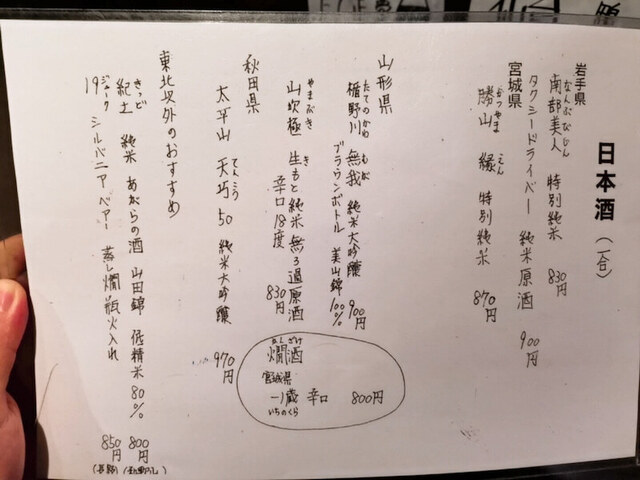 日本酒（一合）
岩手県
なんぶびじん
南部美人 特別純米 830円
タクシードライバー 純米原酒 900円
宮城県
かつやま えん
勝山 縁 特別純米 870円
山形県
たてのかわ むが
楯野川 無我 純米大吟醸 900円
ブラウンボトル 美山錦 100%
やまぶき き
山吹極 生もと純米無ろ過原酒 830円
辛口18度
秋田県
てんこう
太平山 天巧 50 純米大吟醸 970円
東北以外のおすすめ
きっど
紀土 純米 あがらの酒 山田錦 低精米80% 800円
ジューク
19 シルバニアベアー 蒸し燗瓶火入れ 850円
(長野)
(和歌山)
かんざけ
燗酒
宮城県
一ノ蔵 辛口 800円
いちのくら